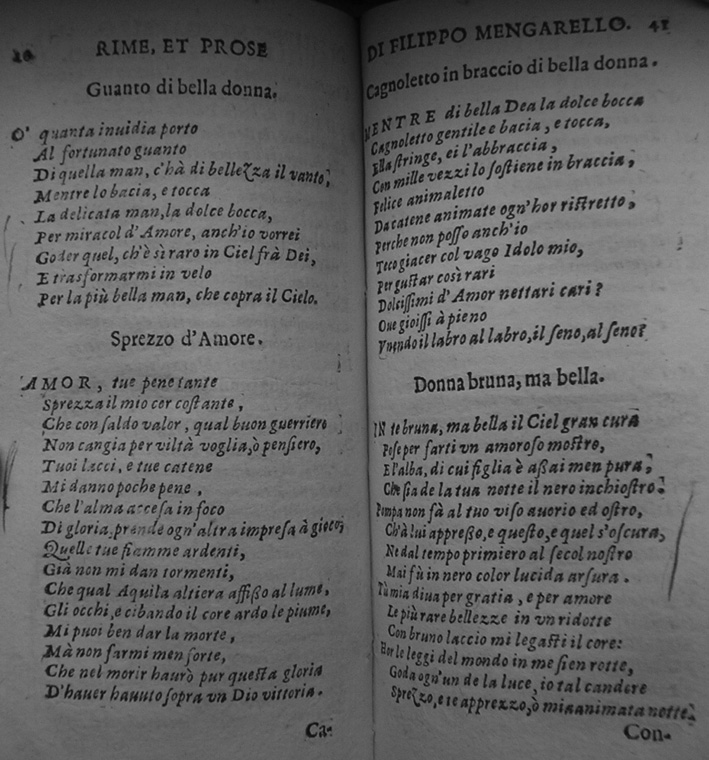 40 RIME, ET PROSE
Guanto di bella donna.
O' quanta inuidia porto
Al fortunato guanto
Di quella man, c'hà di belleZza il vanto;
Mentre lo bacia, e tocca
La delicata man, la dolce bocca,
Per miracol d'Amore, anch'io vorrei
Goder quel, ch'è sì raro in Ciel frà Dei,
E trasformarmi in velo
Per la più bella man, che copra il Cielo.
Sprezzo d'Amore.
AMOR, tue pene tante
Sprezza il mio cor costante,
Che con saldo valor, qual buon guerriero
Non cangia per viltà voglia, ò pensiero,
Tuoi lacci, e tue catene
Mi danno poche pene,
Che l'alma accesa in foco
Di gloria, prende ogn'altra impresa à gioco;
Quelle tue fiamme ardenti,
Già non mi dan tormenti,
Che qual Aquila altiera affißo al lume,
Gli occhi, e cibando il core ardo le piume,
Mi puoi ben dar la morte,
Mà non farmi men forte,
Che nel morir haurò pur questa gloria
D'hauer hauuto sopra vn Dio vittoria.
Ca-
DI FILIPPO MENGARELLO. 41
Cagnoletto in braccio di bella donna.
MENTRE di bella Dea la dolce bocca
Cagnoletto gentile e bacia, e tocca,
Ella stringe, ei l'abbraccia,
Con mille vezzi lo sostiene in braccia;
Felice animaletto
Da catene animate ogn'hor ristretto;
Perche non posso anch'io
Teco giacer col vago Idolo mio,
Per gustar così rari
Dolcissimi d'Amor nettari cari?
Oue gioissi à pieno
Vnendo il labro al labro, il seno, al seno?
Donna bruna, ma bella.
IN te bruna, ma bella il Ciel gran cura
Pose per farti vn amoroso mostro,
E l'alba, di cui figlia è aßai men pura;
Che sia de la tua notte il nero inchiostro:
Pompa non fà al tuo viso auorio ed ostro,
Ch'à lui appreßo, e questo, e quel s'oscura,
Ne dal tempo primiero al secol nostro
Mai fù in nero color lucida arsura.
Tù mia diua per gratia, e per amore
Le più rare bellezze in vn ridotte
Con bruno laccio mi legasti il core:
Hor le leggi del mondo in me sien rotte,
Goda ogn'un de la luce, io tal candore
Sprezzo, e te apprezzo, ò mia animata notte.
Con-